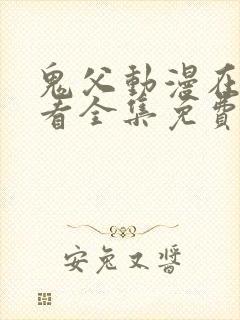 鬼父動漫在
看全集免費
安兔又醬